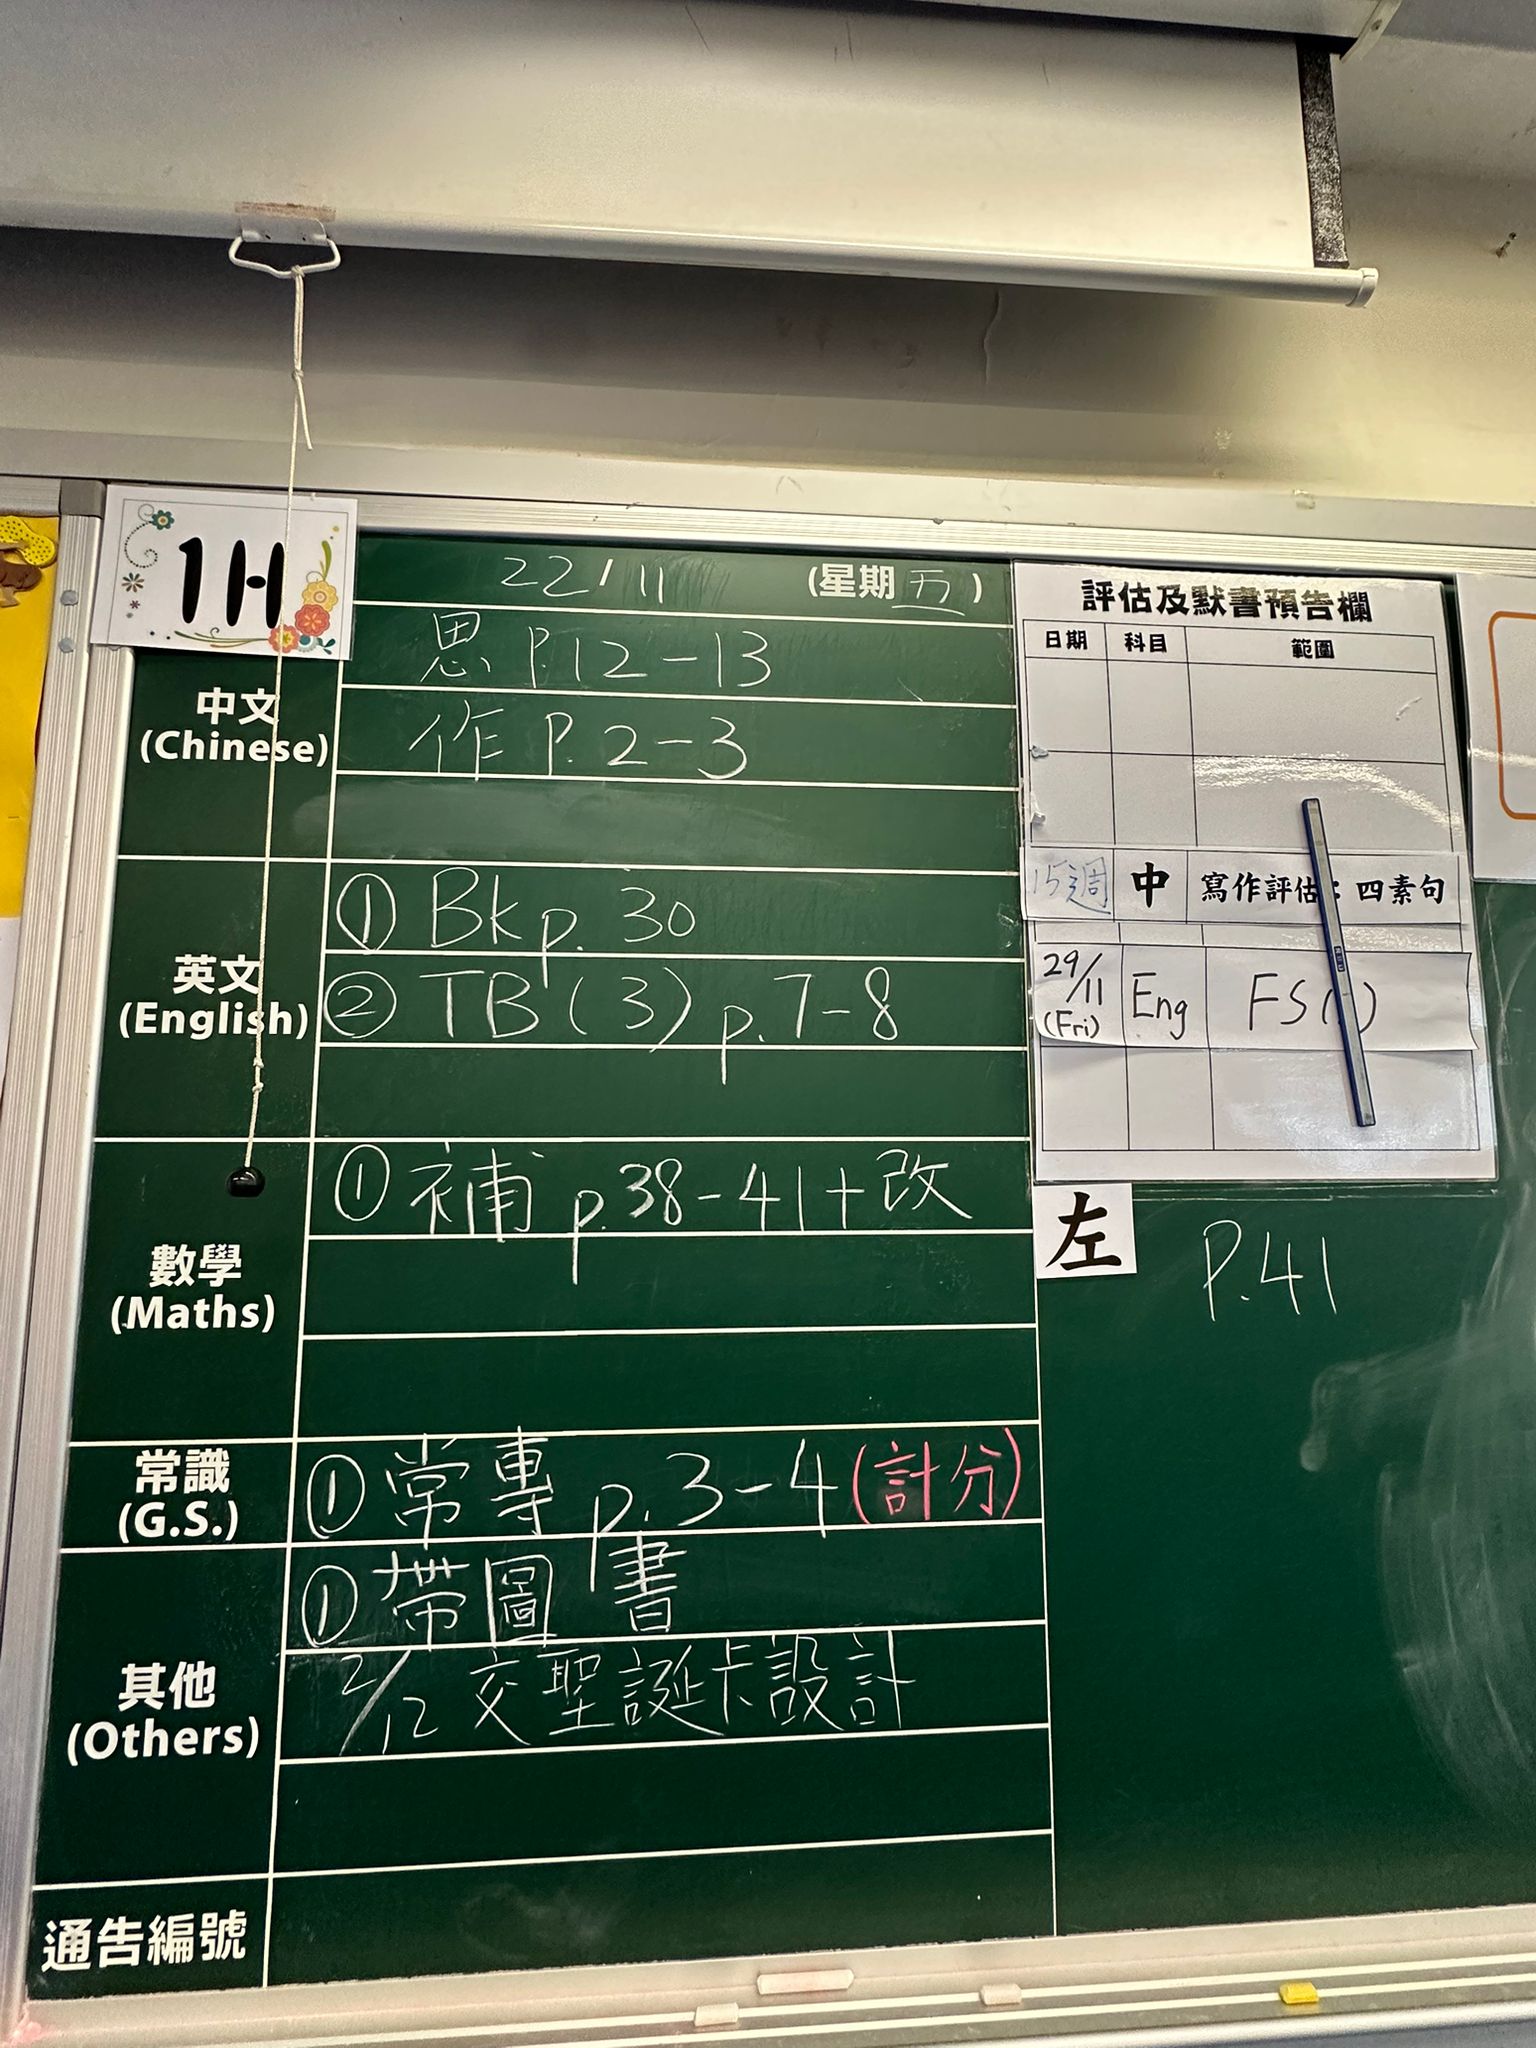 1H
22/11 (星期五)
中文
(Chinese)
思 P.12-13
作 P.2-3
英文
(English)
① Bk p. 30
② TB (3) p.7-8
數學
(Maths)
① 補 p.38-41+改
常識
(G.S.)
① 常專 p.3-4 (計分)
其他
(Others)
① 帶圖書
2/12 交聖誕卡設計
通告編號
評估及默書預告欄
日期 科目 範圍
15週 中 寫作評估：四素句
29/11 (Fri) Eng FS
左 P.41